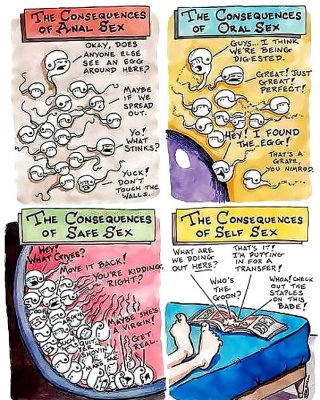 THE CONSEQUENCES
OF ANAL SEX
OKAY, DOES
ANYONE ELSE
SEE AN EGG
AROUND HERE?
MAYBE
IF WE
SPREAD
OUT.
YO!
WHAT
STINKS?
YUCK!
DON'T
TOUCH THE
WALLS.
THE CONSEQUENCES
OF ORAL SEX
GUYS... I THINK
WE'RE BEING
DIGESTED.
GREAT! JUST
GREAT!
PERFECT!
HEY! I FOUND
THE EGG!
THAT'S A
GRAPE,
YOU NIMROD.
THE CONSEQUENCES
OF SAFE SEX
HEY!
WHAT GIVES?
MOVE IT BACK!
YOU'RE KIDDING,
RIGHT?
MAYBE SHE'S
A VIRGIN!
GET
REAL.
QUIT
THE CONSEQUENCES
OF SELF SEX
WHAT ARE
WE DOING
OUT HERE?
THAT'S IT!
I'M PUTTING
IN FOR A
TRANSFER!
WHO'S
THE
GOON?
WHOA! CHECK
OUT THE
STAPLES
ON THIS
BABE!